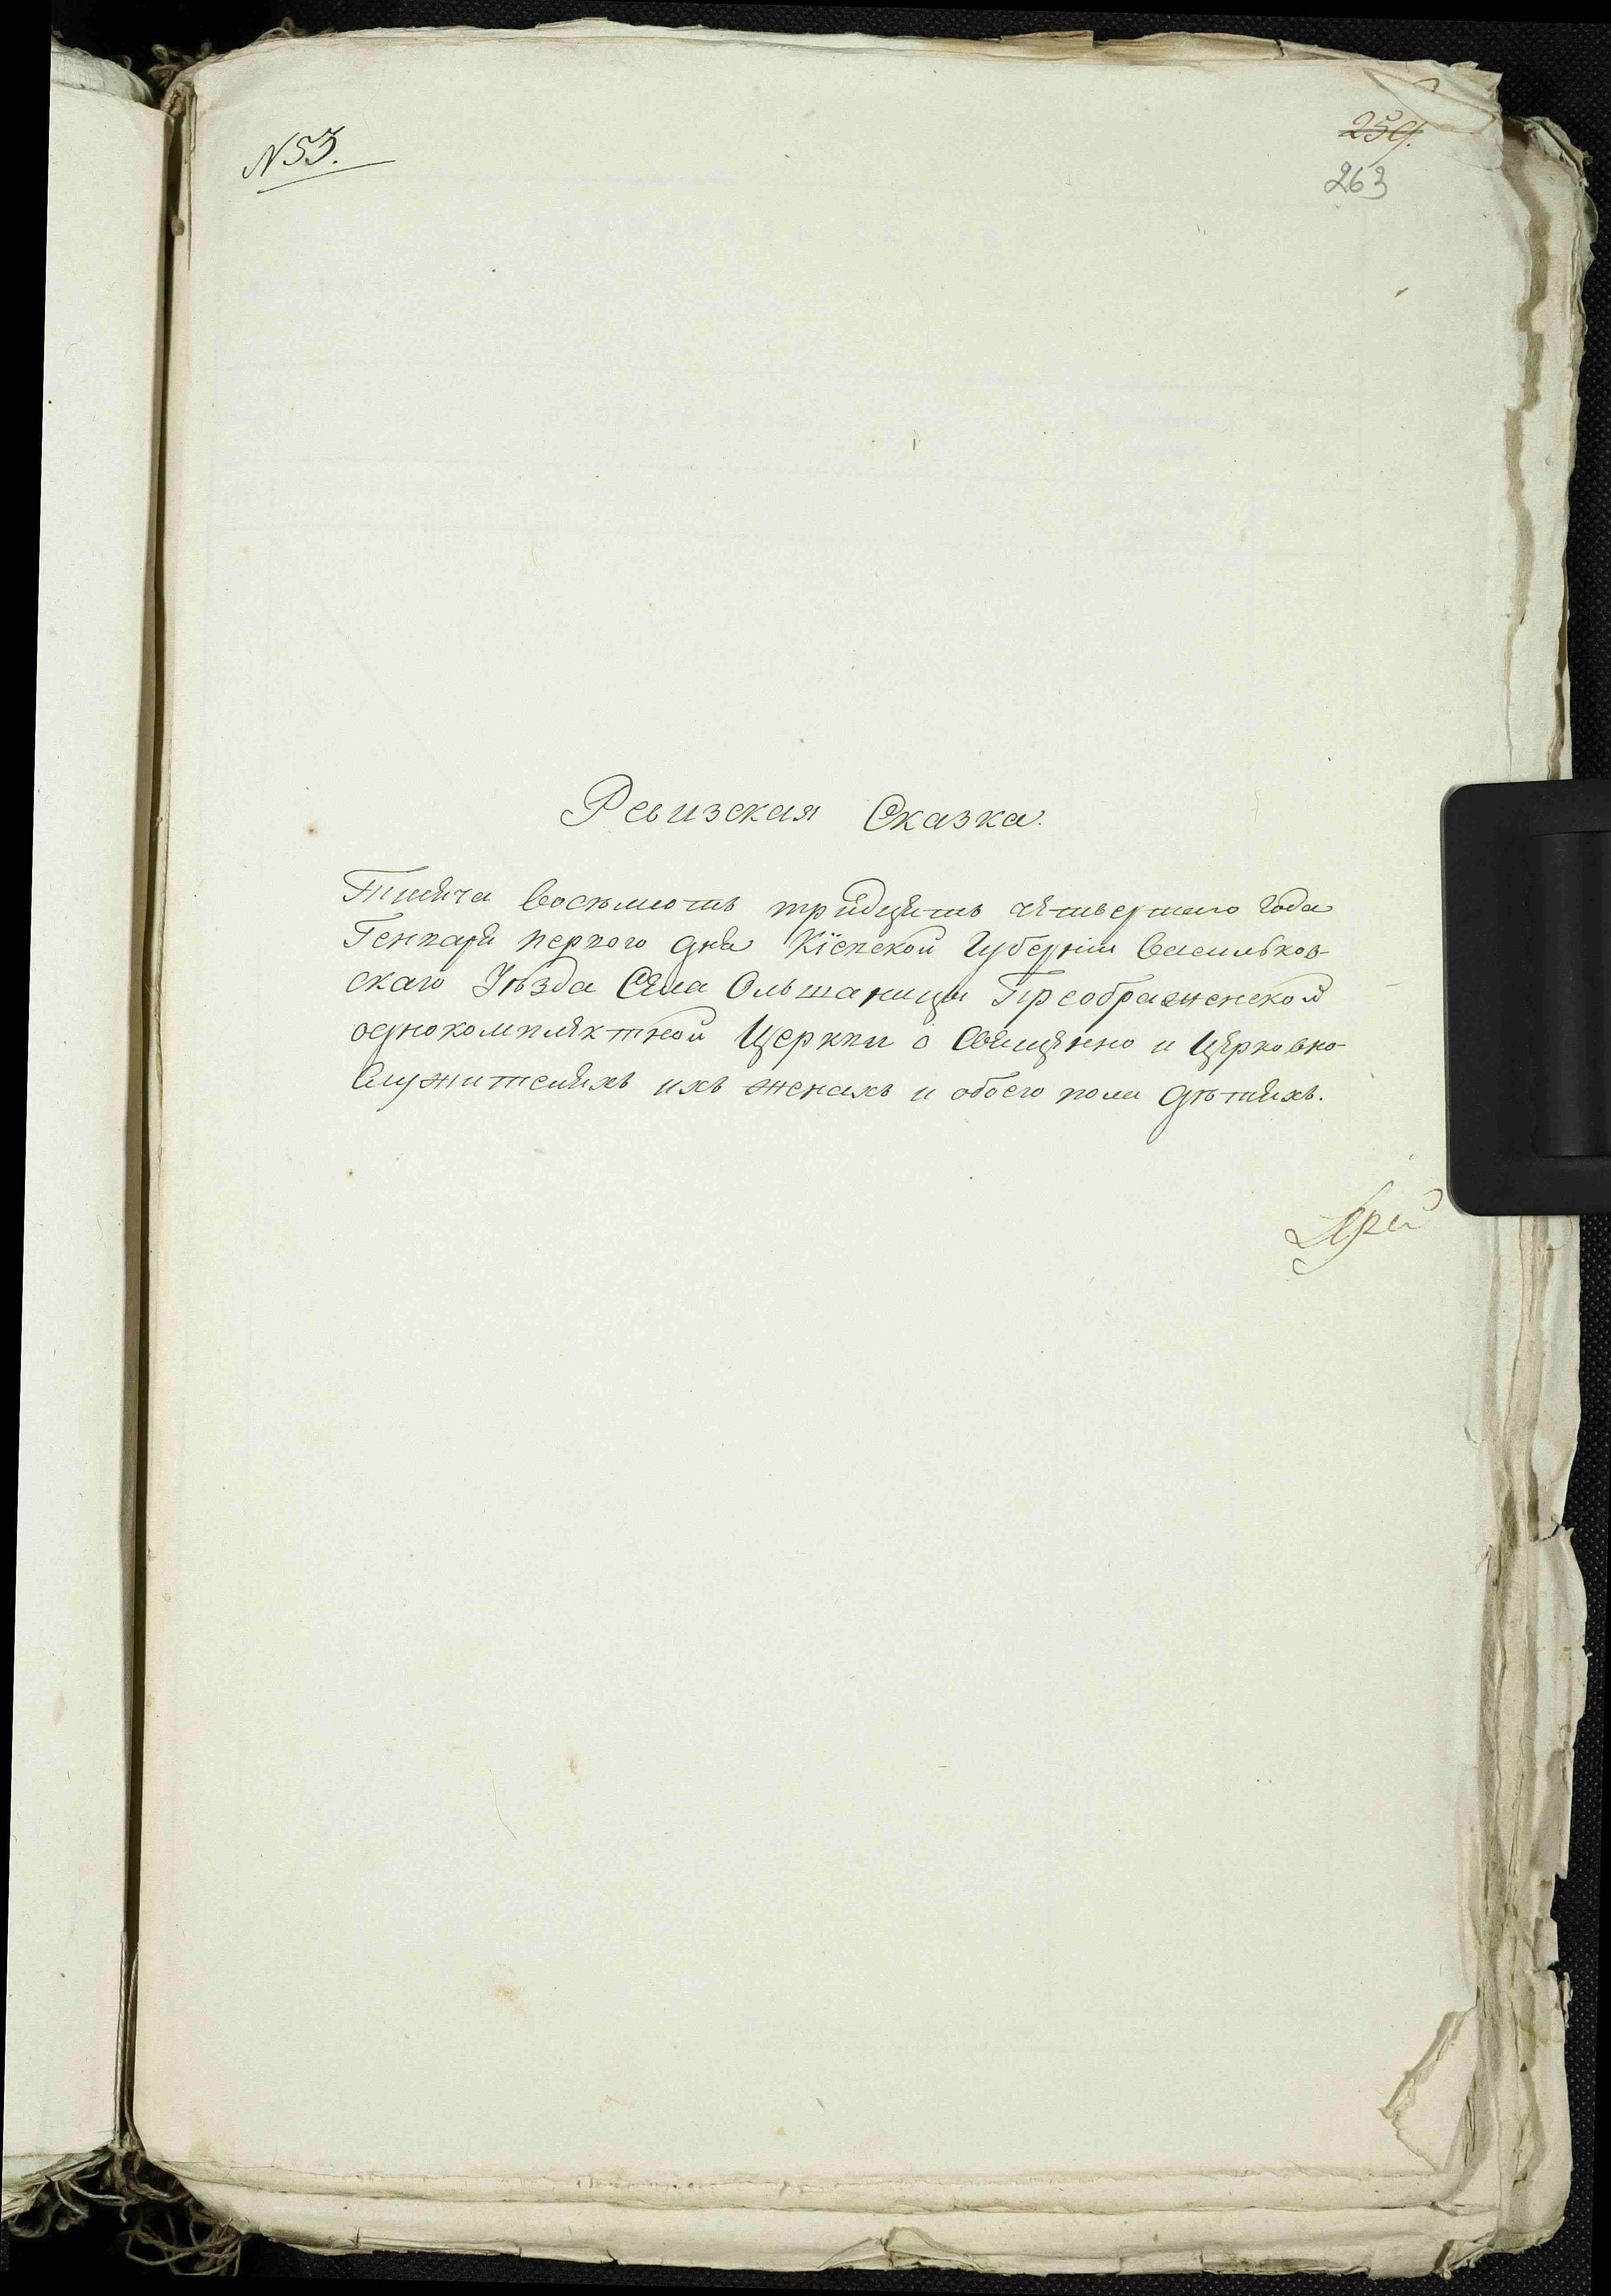 N 53.
259.
263
Ревизская Сказка.
Тысяча восемьсотъ тридцять четвертаго года
Генваря первого дня Кіевской Губерніи Васильков-
скаго Уѣзда Села Ольшаницы Преображенской
однокомплектной Церкви о Священно и Церковно-
служителяхъ ихъ женахъ и обоего пола дѣтяхъ.